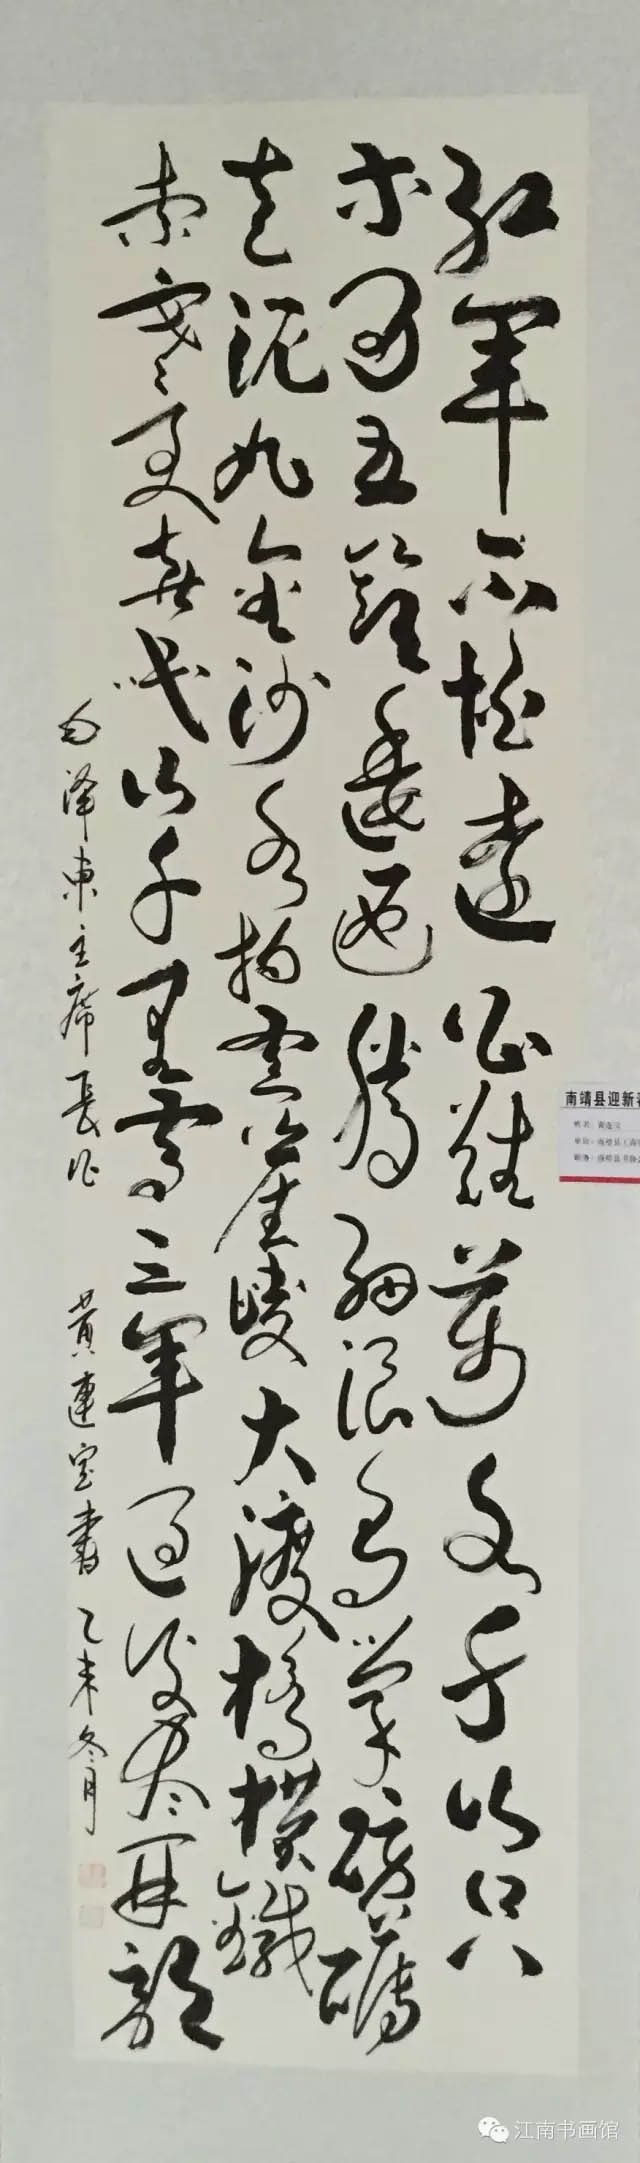 紅軍不怕遠征難萬水千山只
等閒五嶺逶迤騰細浪烏蒙磅礴
走泥丸金沙水拍雲崖暖大渡橋橫鐵
索寒更喜岷山千里雪三軍過後盡開顏
毛泽東主席長征 黄連宝書 乙未冬月
南靖县迎新春
江南书画馆